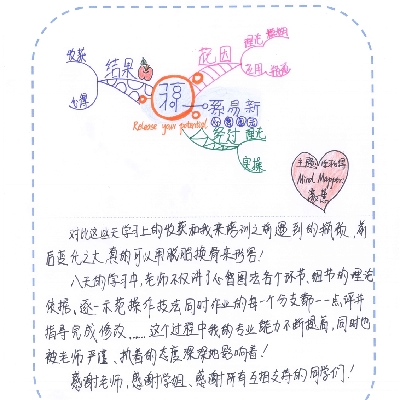 收获
结果
理论
应用
孙易新
心智图法
Release your potential
经过
理论
实操
主题:
Mind Mapper:
对比这些天学习上的收获和我来培训之前遇到的挑战,前
后变化之大,真的可以用脱胎换骨来形容!
八天的学习中,老师不仅讲了心智图法各个环节、细节的理论
依据,逐一示范操作技法,同时作业的每一个分支都一一点评并
指导完成、修改,……这个过程中我的专业能力不断提高,同时也
被老师严谨、执着的态度深深地影响着!
感谢老师,感谢学姐、感谢所有互相支持的同学们!